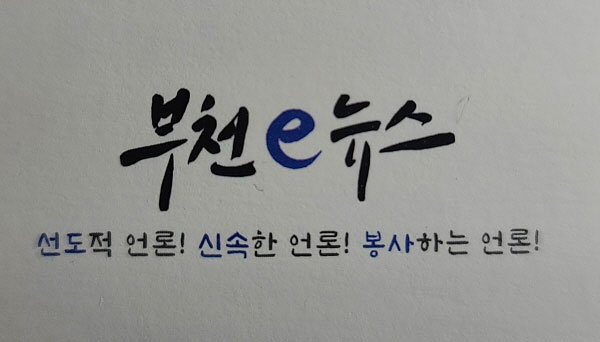 부천e뉴스
선도적 언론! 신속한 언론! 봉사하는 언론!